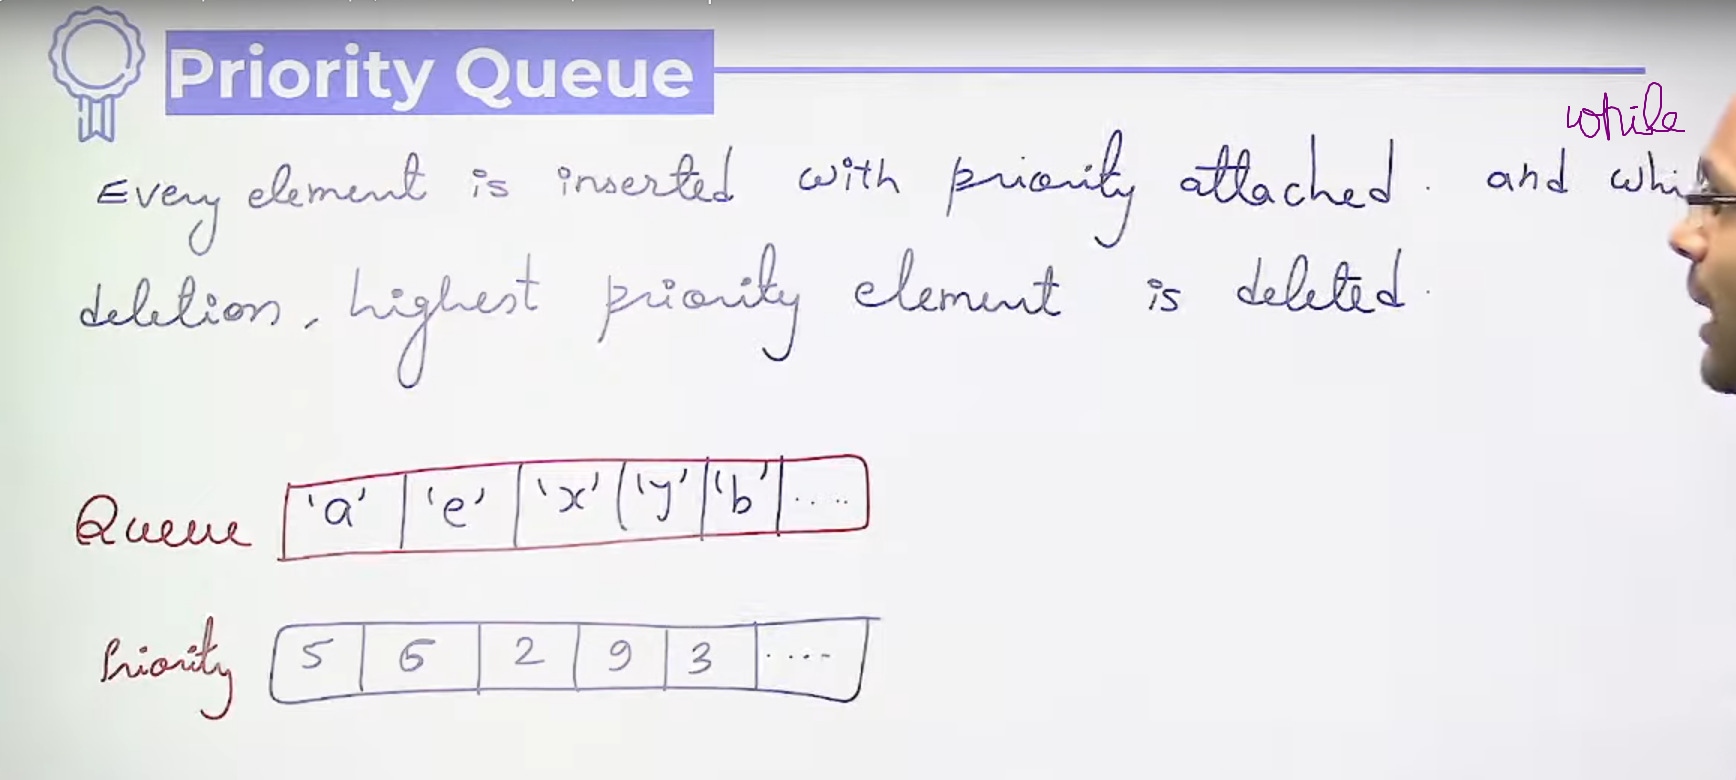 Priority Queue
while
Every element is inserted with priority attached. and whi
deletion, highest priority element is deleted.
Queue 'a' 'e' 'x' 'y' 'b' .....
Priority 5 6 2 9 3 ....